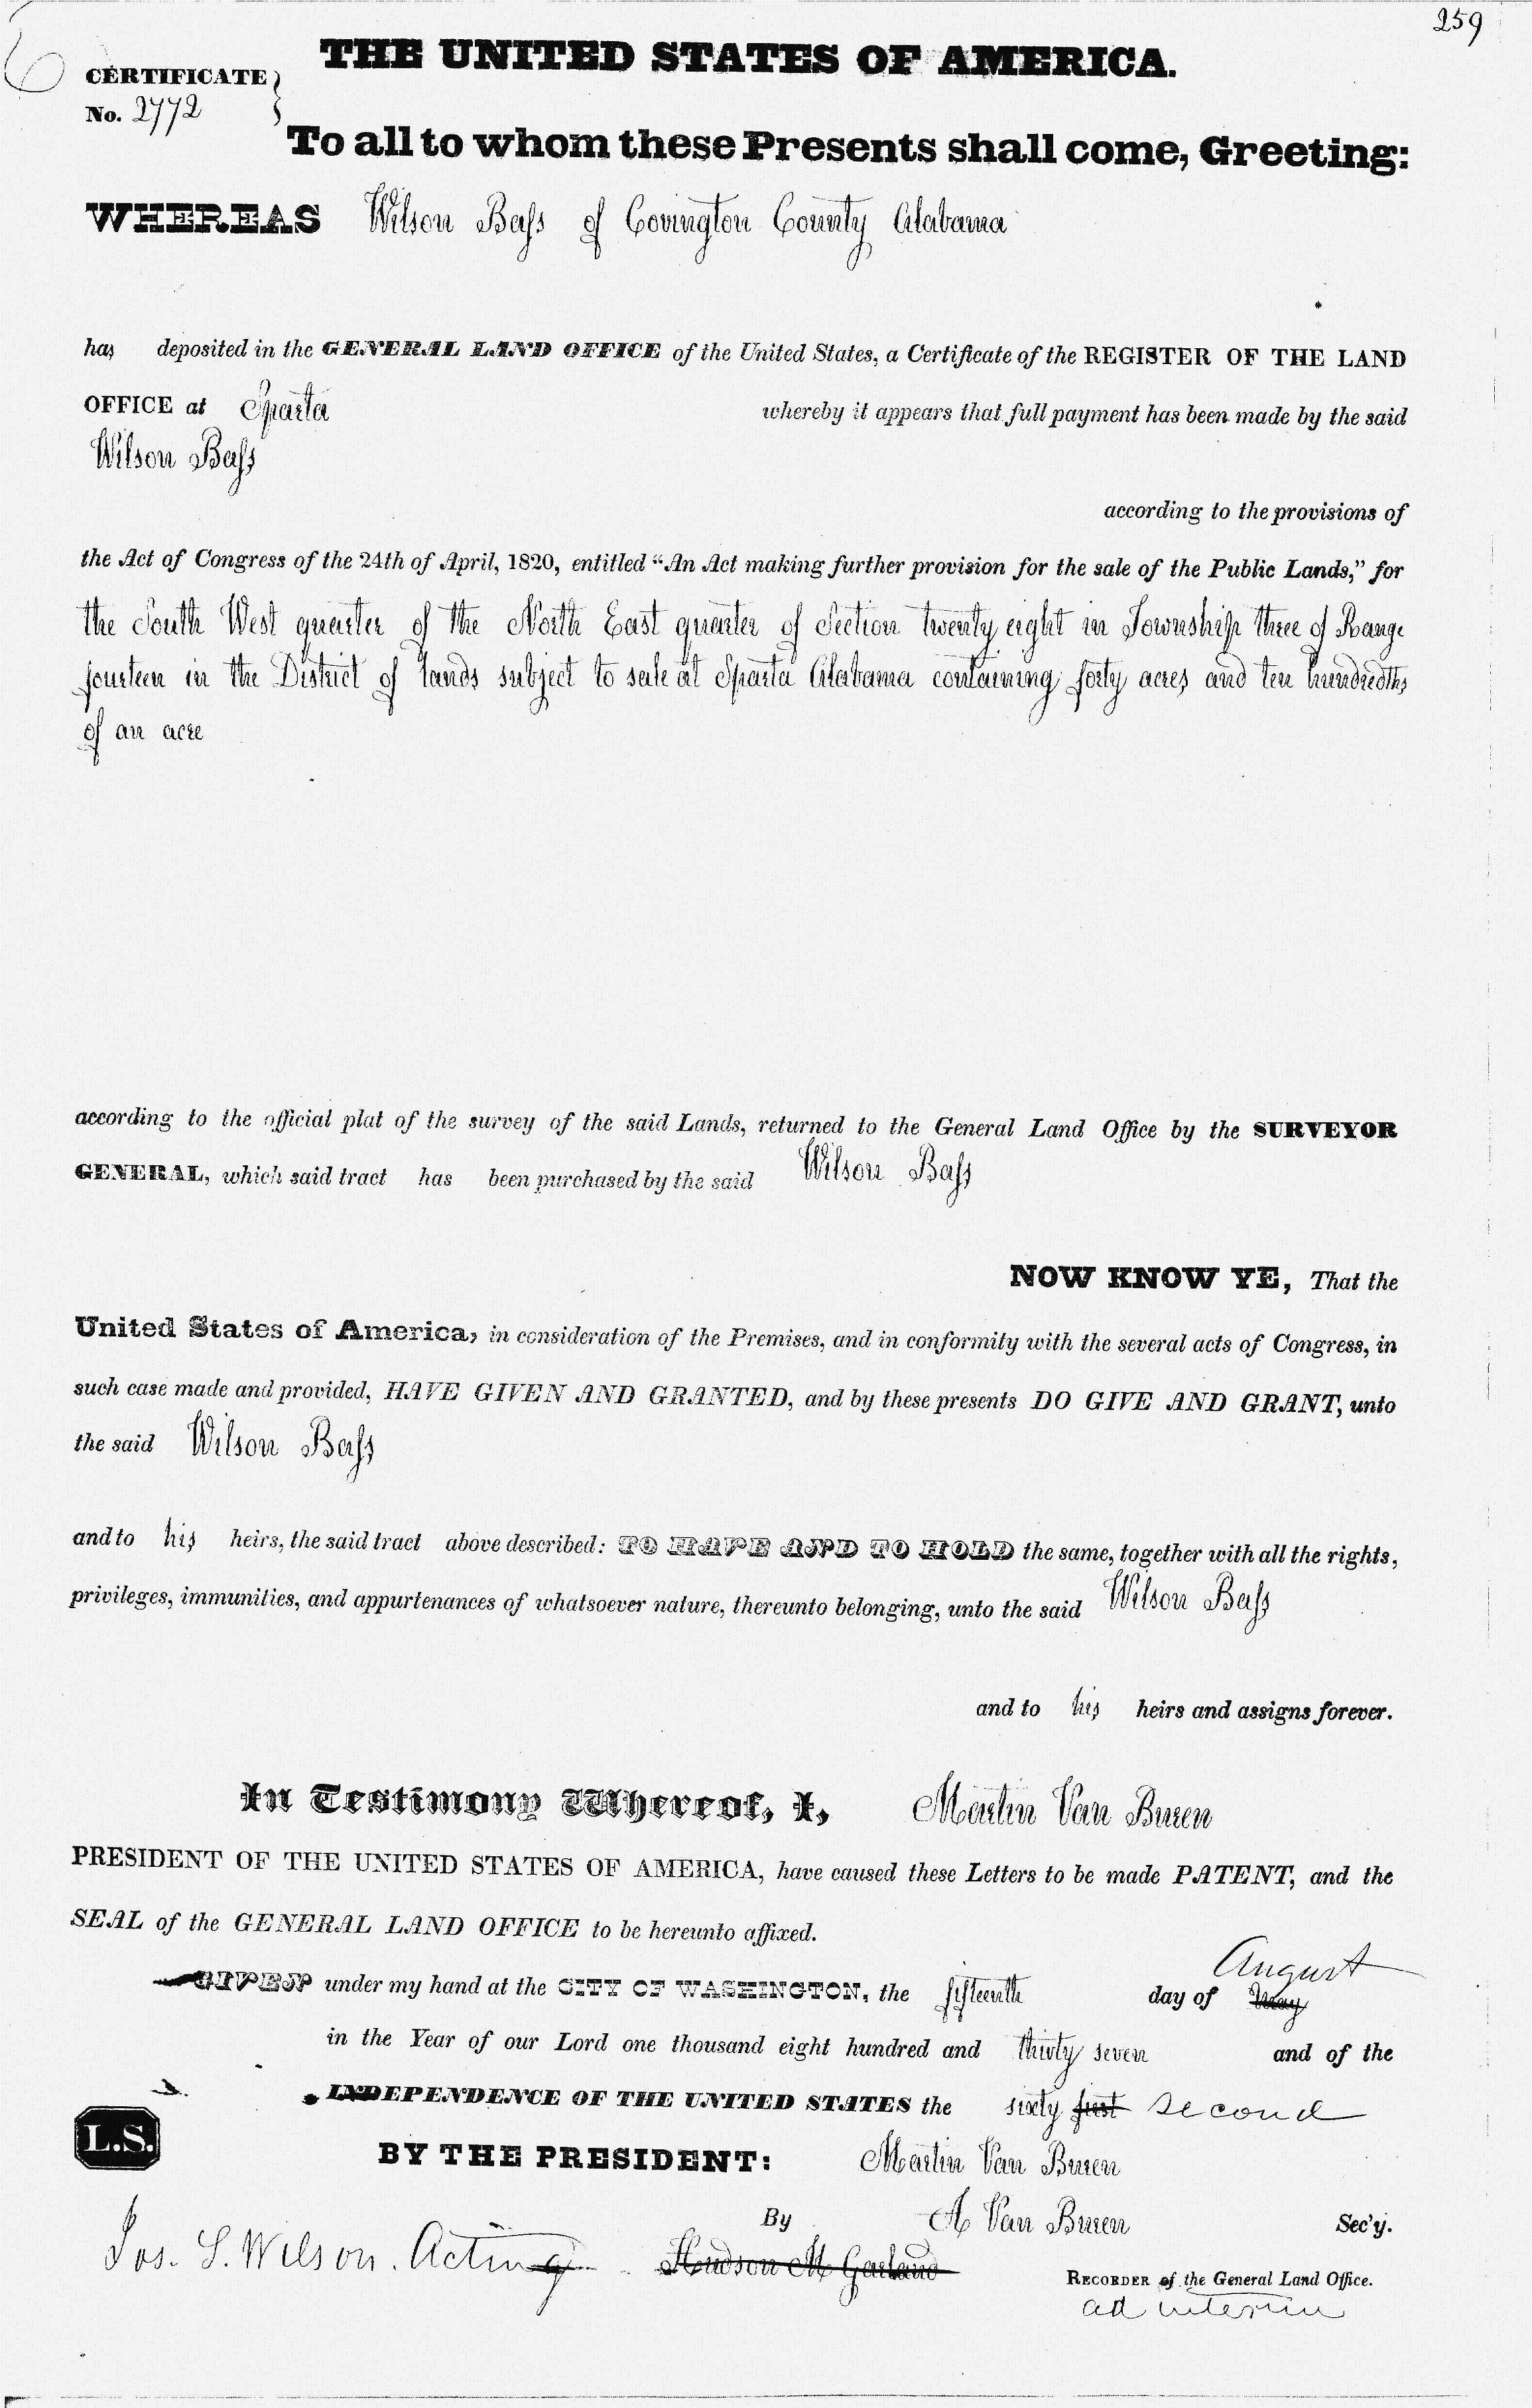 259
THE UNITED STATES OF AMERICA.
CERTIFICATE
No. 2772
To all to whom these Presents shall come, Greeting:
WHEREAS Wilson Baſs of Covington County Alabama
has deposited in the GENERAL LAND OFFICE of the United States, a Certificate of the REGISTER OF THE LAND
OFFICE at Sparta whereby it appears that full payment has been made by the said
Wilson Baſs
according to the provisions of
the Act of Congress of the 24th of April, 1820, entitled “An Act making further provision for the sale of the Public Lands,” for
the South West quarter of the North East quarter of Section twenty eight in Township three of Range
fourteen in the District of lands subject to sale at Sparta Alabama containing forty acres and ten hundredths
of an acre
according to the official plat of the survey of the said Lands, returned to the General Land Office by the SURVEYOR
GENERAL, which said tract has been purchased by the said Wilson Baſs
NOW KNOW YE, That the
United States of America, in consideration of the Premises, and in conformity with the several acts of Congress, in
such case made and provided, HAVE GIVEN AND GRANTED, and by these presents DO GIVE AND GRANT, unto
the said Wilson Baſs
and to his heirs, the said tract above described: TO HAVE AND TO HOLD the same, together with all the rights,
privileges, immunities, and appurtenances of whatsoever nature, thereunto belonging, unto the said Wilson Baſs
and to his heirs and assigns forever.
In Testimony Whereof, I, Martin Van Buren
PRESIDENT OF THE UNITED STATES OF AMERICA, have caused these Letters to be made PATENT, and the
SEAL of the GENERAL LAND OFFICE to be hereunto affixed.
August
GIVEN under my hand at the CITY OF WASHINGTON, the fifteenth day of May
in the Year of our Lord one thousand eight hundred and thirty seven and of the
INDEPENDENCE OF THE UNITED STATES the sixty first second
L.S.
BY THE PRESIDENT: Martin Van Buren
By A Van Buren Sec'y.
Jos. S. Wilson. Acting Hudson M Garland
RECORDER of the General Land Office.
ad interim